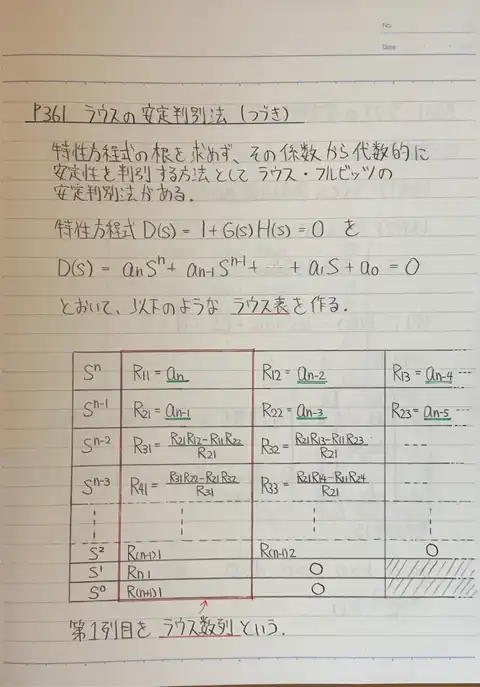 No.
Date
P361 ラウスの安定判別法 (つづき)
特性方程式の根を求めず、その係数から代数的に
安定性を判別する方法として ラウス・フルビッツの
安定判別法がある.
特性方程式 D(s) = 1+G(s)H(s) = 0 を
D(s) = aₙSⁿ + aₙ₋₁Sⁿ⁻¹ + … + a₁S + a₀ = 0
とおいて、以下のような ラウス表を作る.
Sⁿ R₁₁ = aₙ R₁₂ = aₙ₋₂ R₁₃ = aₙ₋₄ ---
Sⁿ⁻¹ R₂₁ = aₙ₋₁ R₂₂ = aₙ₋₃ R₂₃ = aₙ₋₅ ---
Sⁿ⁻² R₃₁ = (R₂₁R₁₂−R₁₁R₂₂)/R₂₁ R₃₂ = (R₂₁R₁₃−R₁₁R₂₃)/R₂₁ ---
Sⁿ⁻³ R₄₁ = (R₃₁R₂₂−R₂₁R₃₂)/R₃₁ R₃₃ = (R₂₁R₁₄−R₁₁R₂₄)/R₂₁ ---
S² R₍ₙ₋₁₎₁ R₍ₙ₋₁₎₂ 0
S¹ Rₙ₁ 0
S⁰ R₍ₙ₊₁₎₁ 0
第1列目を ラウス数列 という.